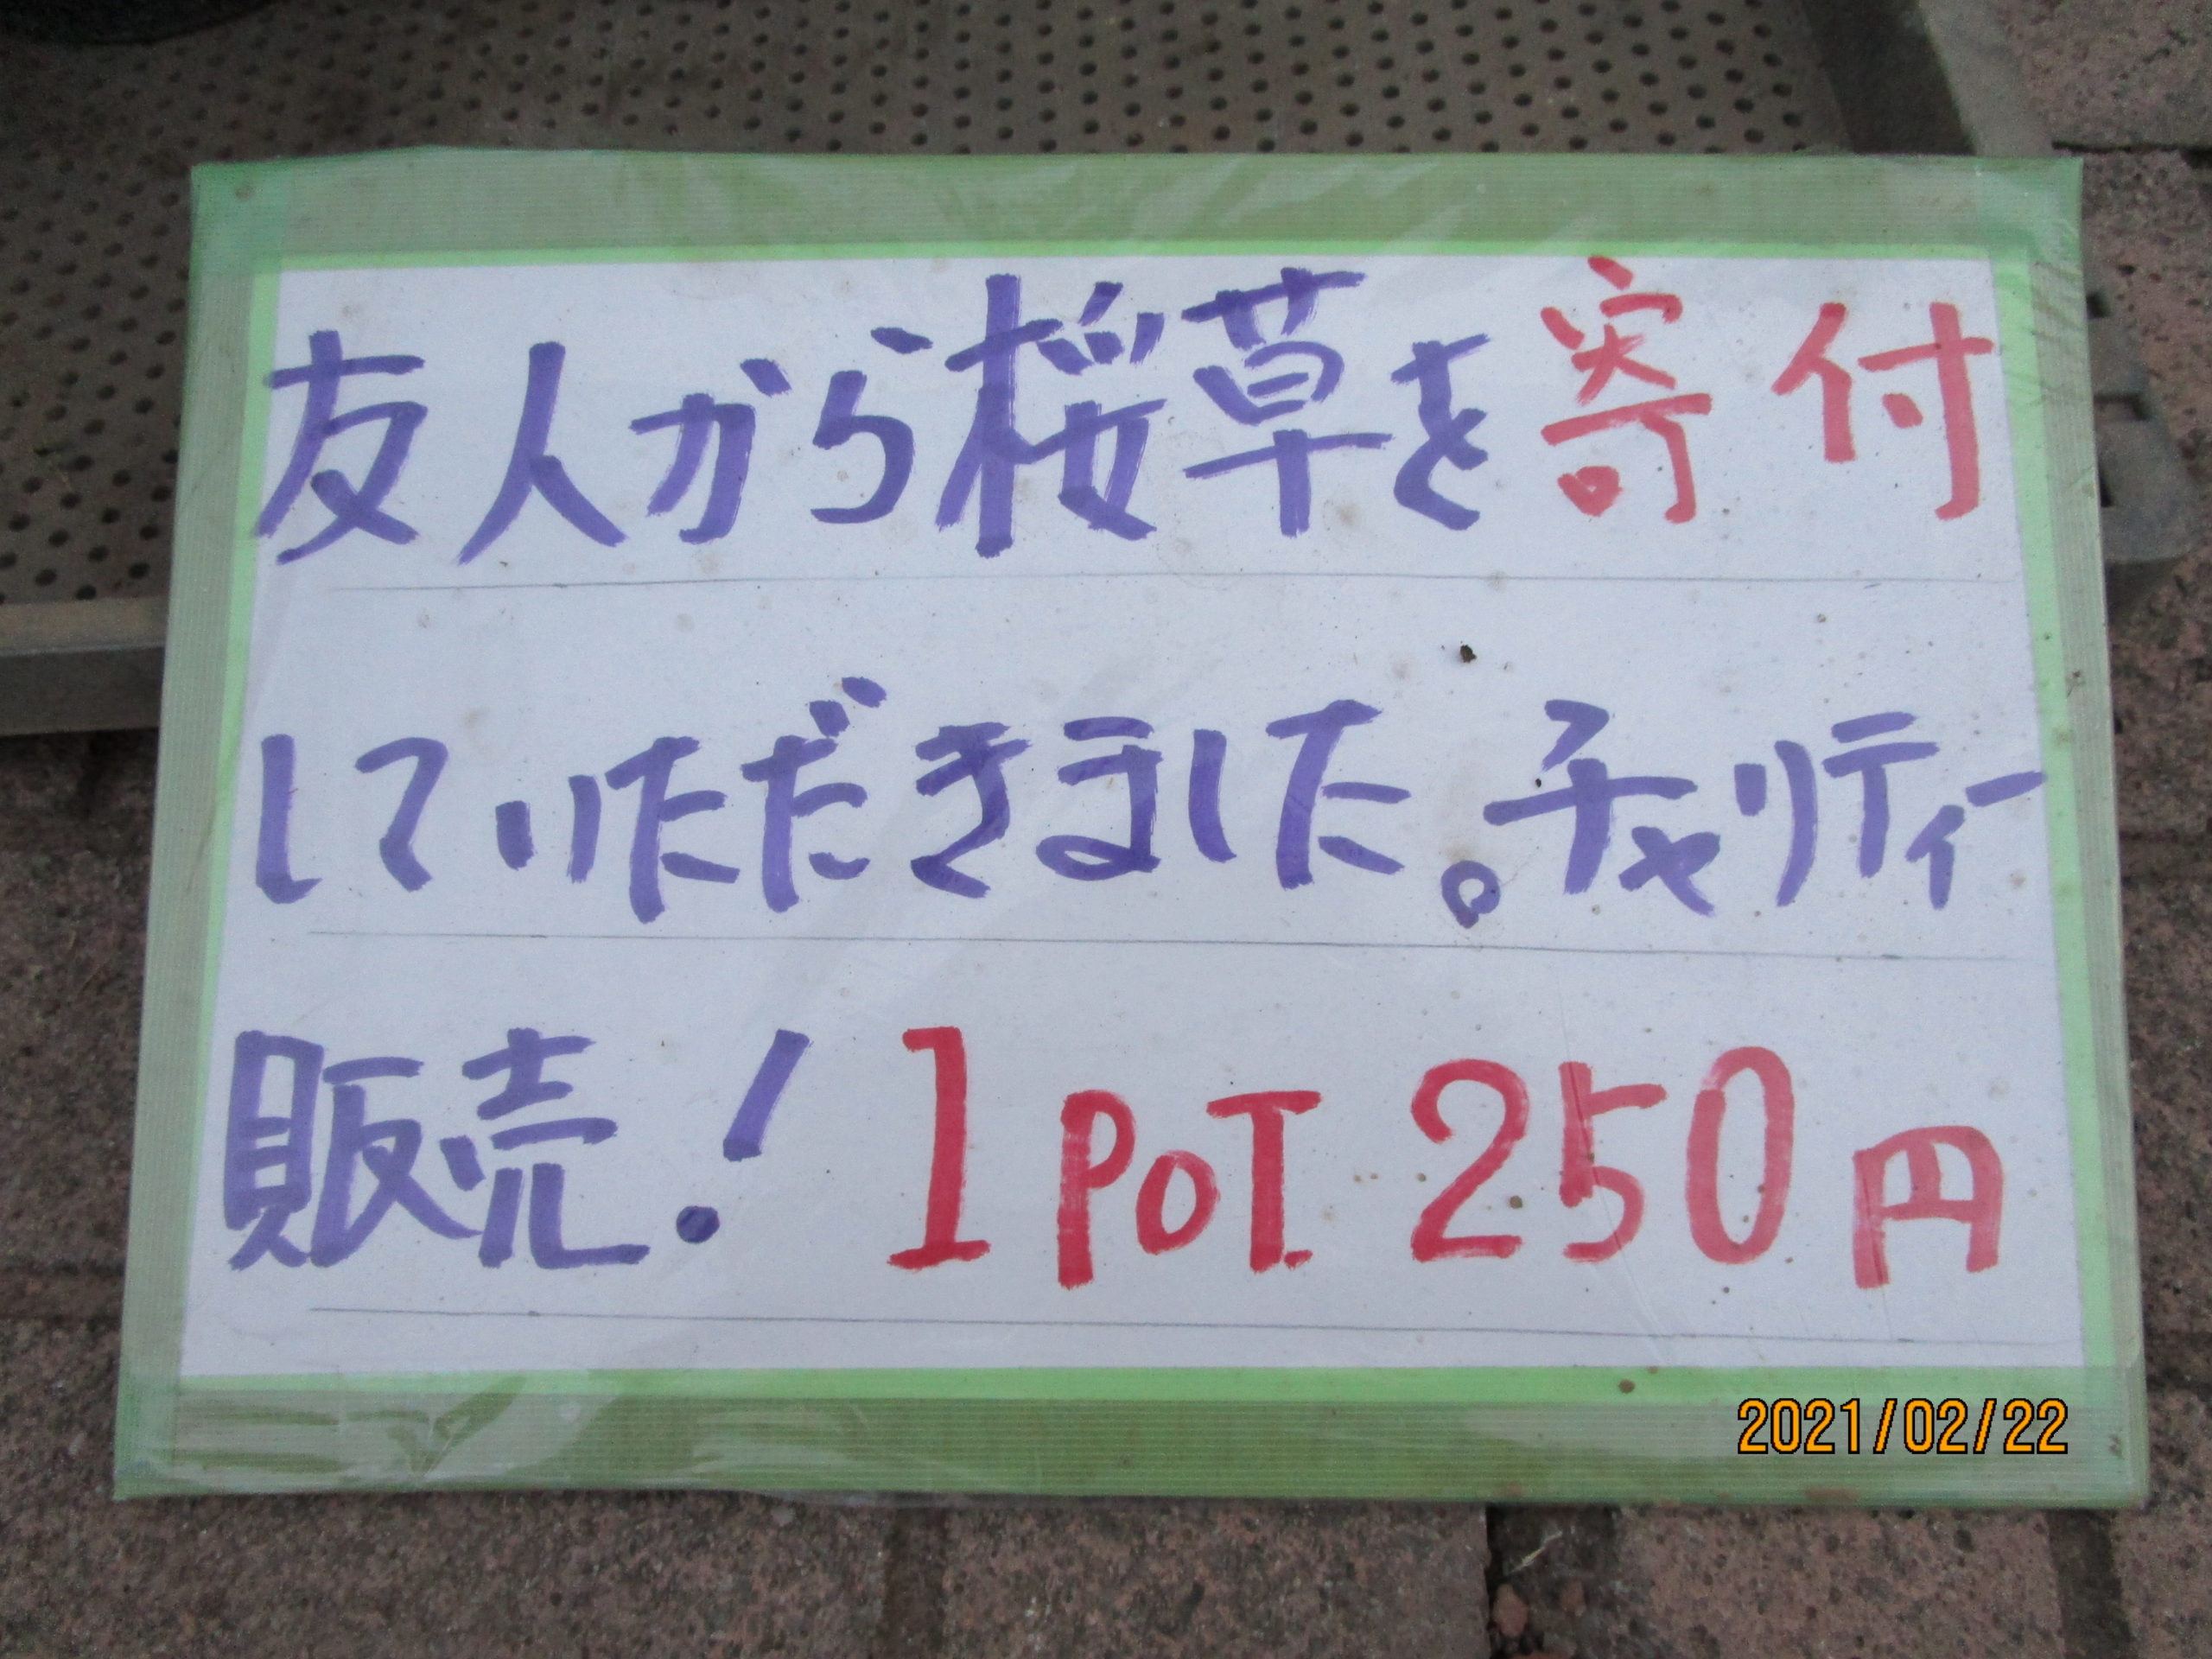 友人から桜草を寄付
していただきました。チャリティー
販売! 1POT 250円
2021/02/22